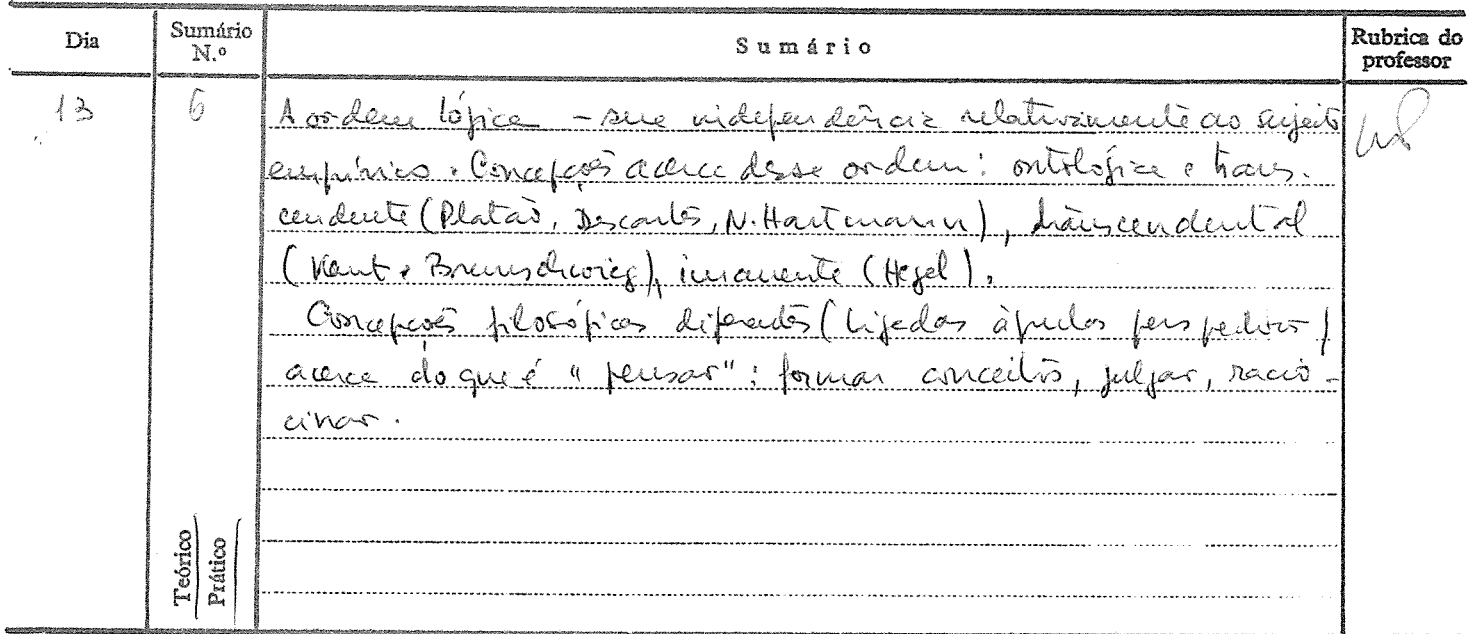 Dia Sumário N.º Sumário Rubrica do professor
13 6 A ordem lógica – sua independência relativamente ao sujeito
empírico. Concepções acerca desse ordem: ontológica e trans-
cendente (Platão, Descartes, N. Hartmann), transcendental
(Kant e Brunschvicg), imanente (Hegel).
Concepções filosóficas diferentes (ligadas àquelas perspectivas)
acerca do que é "pensar": formar conceitos, julgar, racio-
cinar.
Teórico
Prático